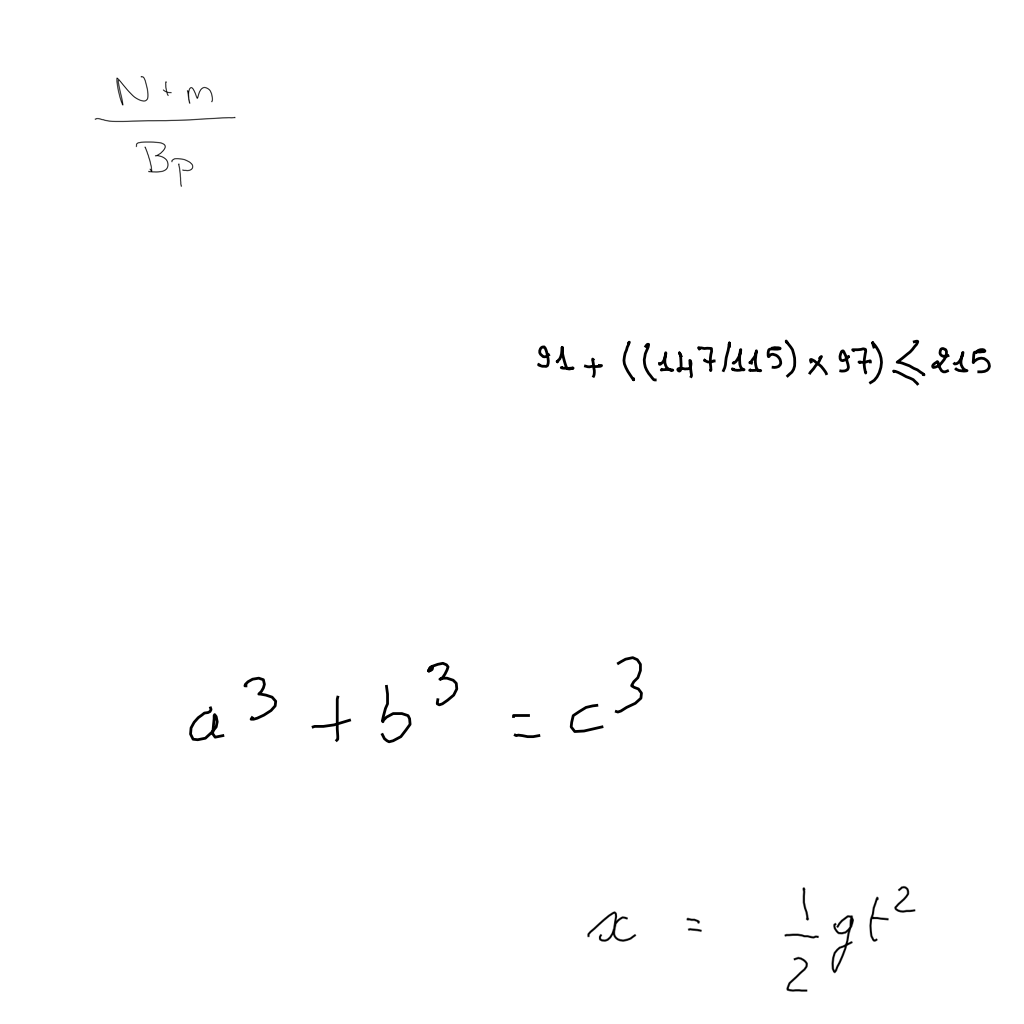 \frac{N+m}{Bp}
91 + ((147/115) × 97) ≤ 215
a^3 + b^3 = c^3
x = \frac{1}{2} g t^2